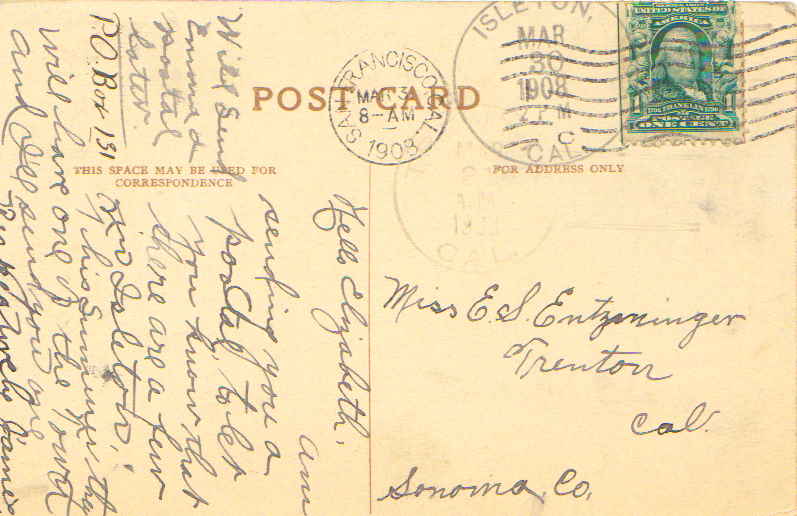 POST CARD
THIS SPACE MAY BE USED FOR
CORRESPONDENCE
FOR ADDRESS ONLY
ISLETON,
MAR
30
1908
CAL.
SAN FRANCISCO, CAL.
MAR 31
8-AM
1908
UNITED STATES OF
AMERICA
FRANKLIN
POSTAGE
ONE CENT
Miss E. S. Entzminger
Trenton
Cal.
Sonoma, Co,
Hello Elizabeth,
am
sending you a
postal, to let
you know that
there are a few
in Isleton,
This Summer they
will have one of the town
and I'll send you one
Respectively James
P.O. Box 131
Will Send
Emma a
postal
later.